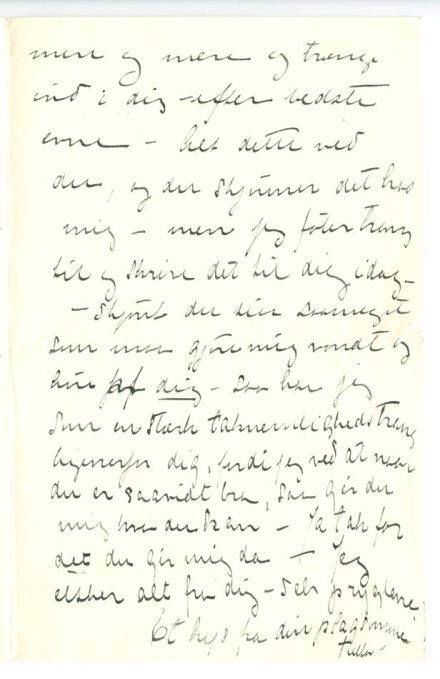 mere og mere og trænge
ind i dig – efter bedste
evne – Alt dette ved
du, og du skjønner det hos
mig – men jeg føler trang
til og skrive det til dig idag –
– Skjønt du sier saameget
som maa gjøre mig vondt og
høre af dig – saa har jeg
som en stærk taknemlighedstrang
ligeoverfor dig, fordi jeg ved at naar
du er saavidt bra, saa gir du
mig hva du kan – Ja tak for
det du gir mig da – Jeg
elsker alt fra dig – selv pryglene
Et kys fra din plagsomme